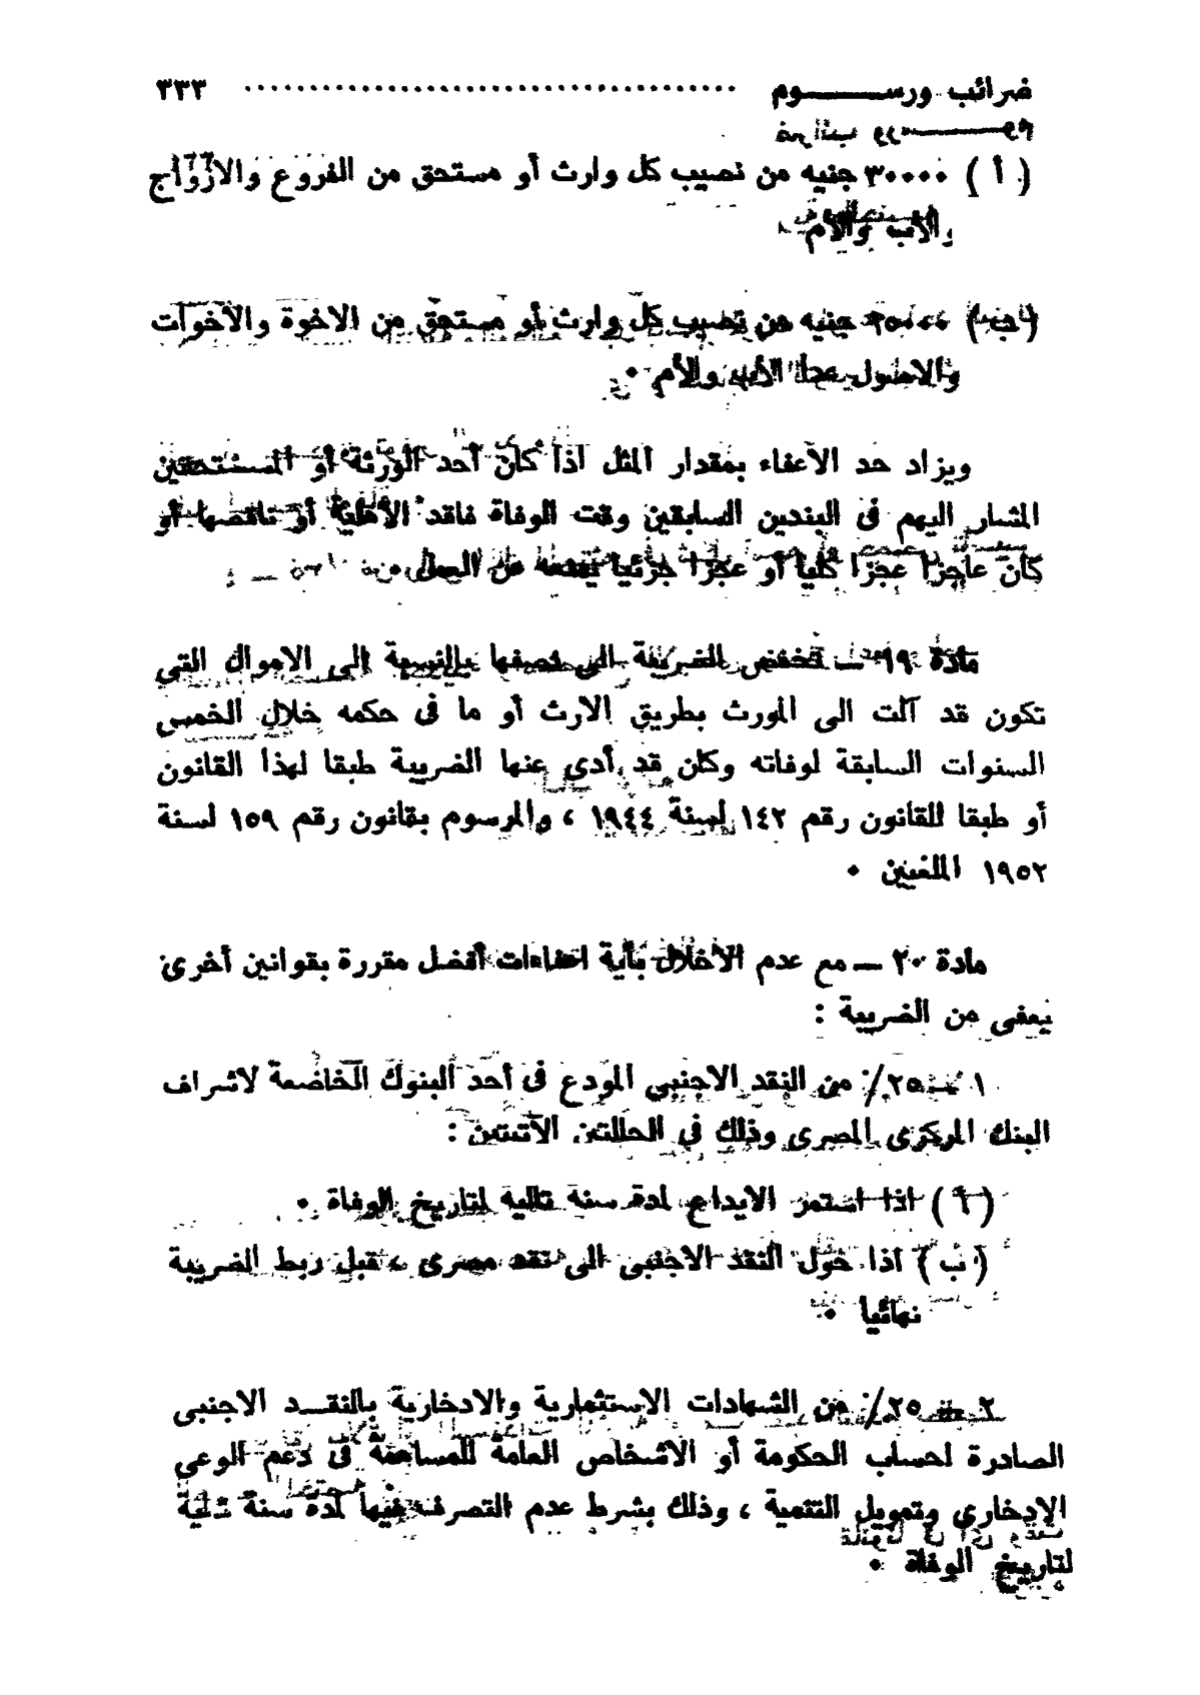 ضرائب ورســـــــوم ...................................... ٣٣٣
( أ ) ٣٠٠٠٠ جنيه من نصيب كل وارث أو مستحق من الفروع والازواج
والأب والأم
(ب) ٢٥٠٠٠ جنيه من نصيب كل وارث أو مستحق من الاخوة والأخوات
والاصول عدا الأب والأم ٠
ويزاد حد الاعفاء بمقدار المثل اذا كان أحد الورثة أو المستحقين
المشار اليهم فى البندين السابقين وقت الوفاة فاقد الأهلية أو ناقصها أو
كان عاجزا عجزا كليا أو عجزا جزئيا يمنعه من العمل ٠
مادة ١٩ ــ تخفض الضريبة الى نصفها بالنسبة الى الاموال التي
تكون قد آلت الى المورث بطريق الارث أو ما فى حكمه خلال الخمس
السنوات السابقة لوفاته وكان قد أدى عنها الضريبة طبقا لهذا القانون
أو طبقا للقانون رقم ١٤٢ لسنة ١٩٤٤ ، والمرسوم بقانون رقم ١٥٩ لسنة
١٩٥٢ الملغيين ٠
مادة ٢٠ ــ مع عدم الاخلال بأية اعفاءات أفضل مقررة بقوانين أخرى
يعفى من الضريبة :
١ ــ ٢٥٪ من النقد الاجنبي المودع فى أحد البنوك الخاضعة لاشراف
البنك المركزى المصرى وذلك في الحالتين الآتيتين :
( أ ) اذا استمر الايداع لمدة سنة تالية لتاريخ الوفاة ٠
(ب) اذا حول النقد الاجنبى الى نقد مصرى ، قبل ربط الضريبة
نهائيا ٠
٢ ــ ٢٥٪ من الشهادات الاستثمارية والادخارية بالنقــد الاجنبى
الصادرة لحساب الحكومة أو الاشخاص العامة للمساهمة فى دعم الوعى
الادخاري وتمويل التنمية ، وذلك بشرط عدم التصرف فيها لمدة سنة تالية
لتاريخ الوفاة ٠